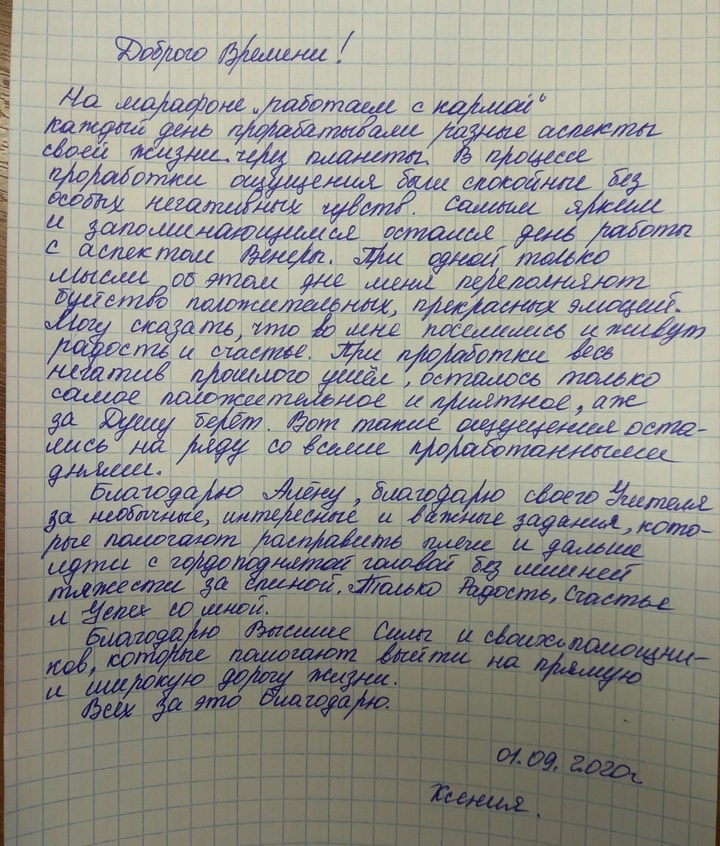 Доброго Времени!
На марафоне „работаем с кармой"
каждый день прорабатывали разные аспекты
своей жизни через планеты. В процессе
проработки ощущения были спокойные без
особых негативных чувств. Самым ярким
и запоминающимся остался день работы
с аспектом Венеры. При одной только
мысли об этом дне меня переполняют
буйство положительных, прекрасных эмоций.
Могу сказать, что во мне поселились и живут
радость и счастье. При проработки весь
негатив прошлого ушёл, осталось только
самое положительное и приятное, аж
за Душу берёт. Вот такие ощущения оста-
лись на ряду со всеми проработанными
днями.
Благодарю Алёну, благодарю своего Учителя
за необычные, интересные и важные задания, кото-
рые помогают расправить плечи и дальше
идти с гордоподнятой головой без лишней
тяжести за спиной. Только Радость, Счастье
и Успех со мной.
Благодарю Высшие Силы и своих помощни-
ков, которые помогают выйти на прямую
и широкую дорогу жизни.
Всех за это благодарю.
01.09.2020г
Ксения.